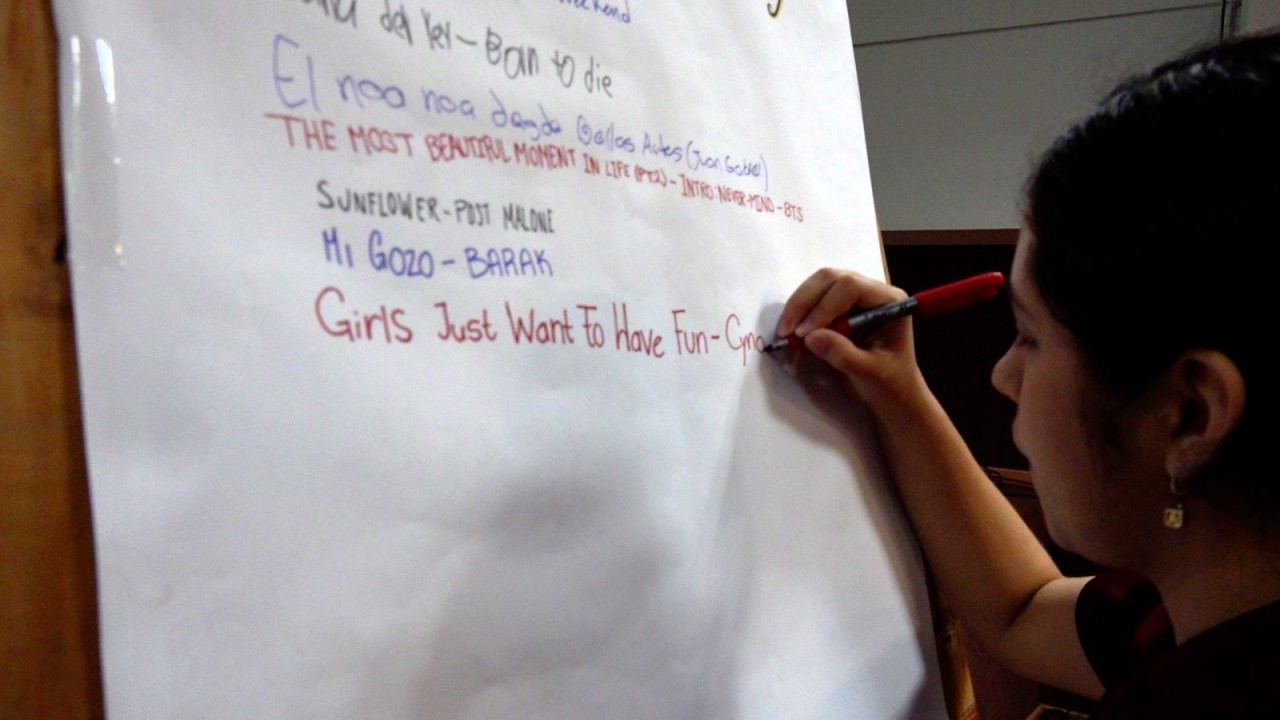 del Rey - Born to die
El noa noa desde Bellas Artes (Juan Gabriel)
THE MOST BEAUTIFUL MOMENT IN LIFE (PT.2) - INTRO: NEVER-MIND - BTS
SUNFLOWER - POST MALONE
MI GOZO - BARAK
Girls Just Want To Have Fun - Cyn